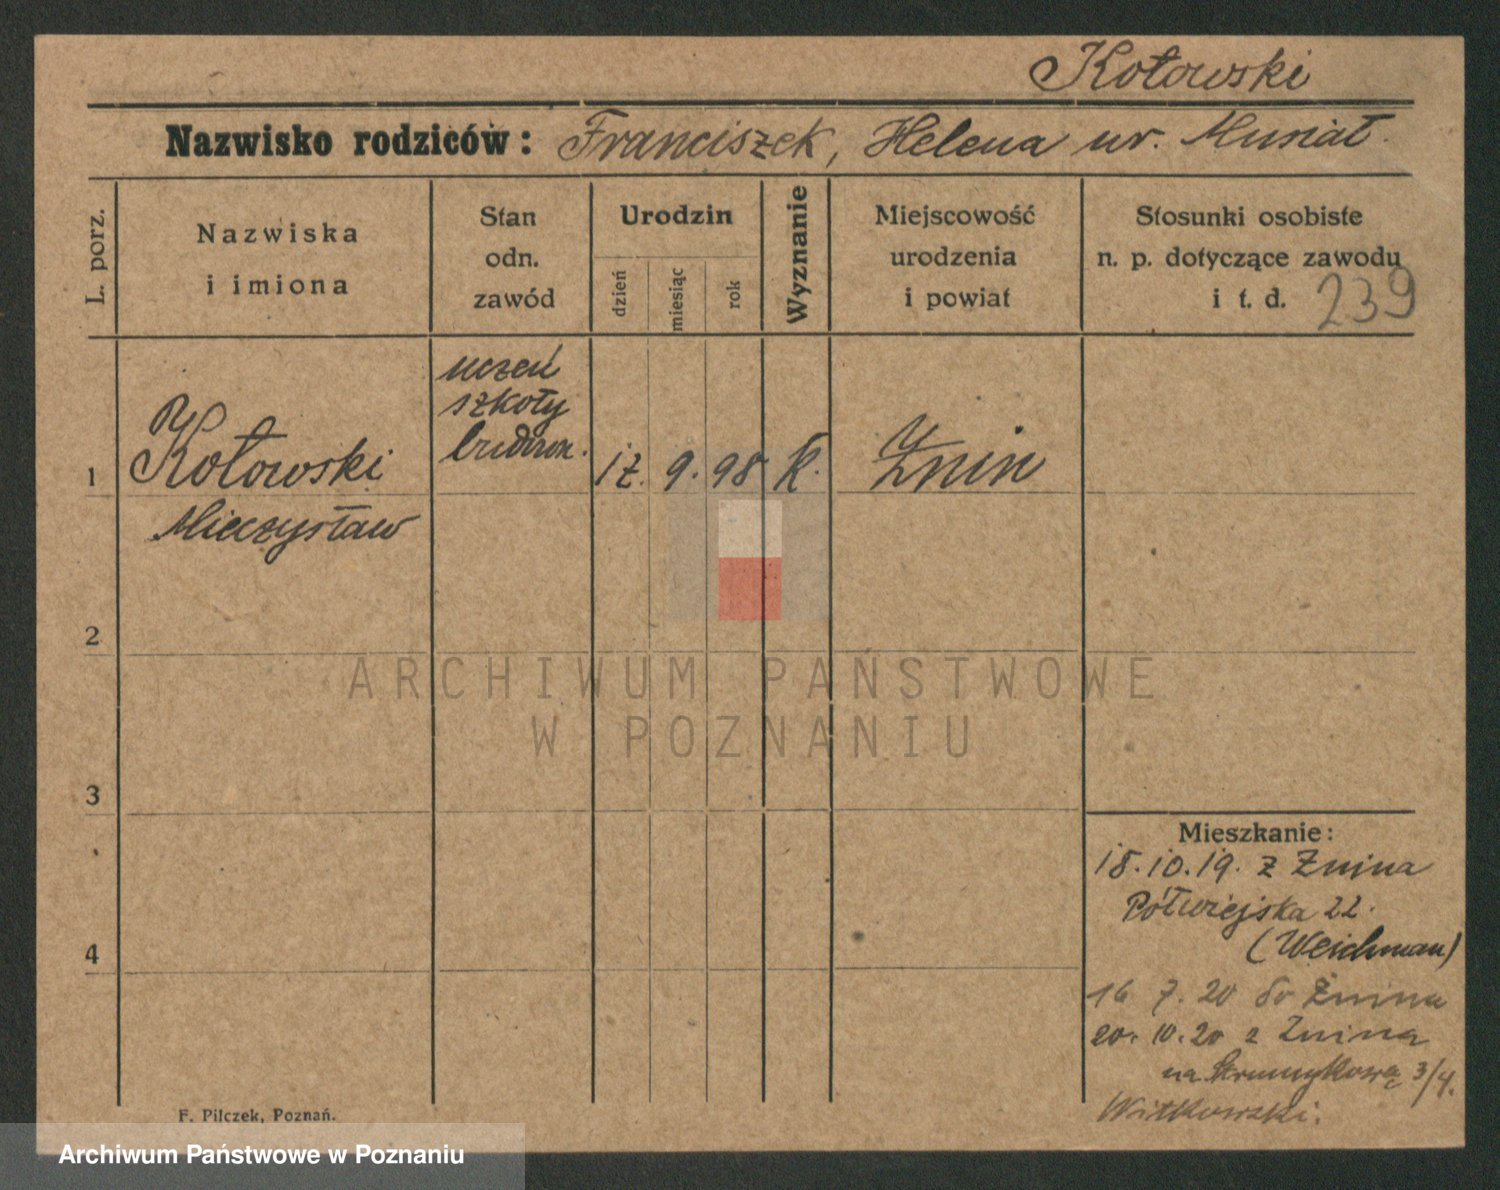 Kotowski
Nazwisko rodziców: Franciszek, Helena ur. Musiał.
L. porz.
Nazwiska
i imiona
Stan
odn.
zawód
Urodzin
dzień
miesiąc
rok
Wyznanie
Miejscowość
urodzenia
i powiat
Stosunki osobiste
n. p. dotyczące zawodu
i t. d. 239
uczeń
szkoły
budown.
1 Kotowski 9. 98 k. Żnin
Mieczysław
2
ARCHIWUM PAŃSTWOWE
W POZNANIU
3
Mieszkanie:
18.10.19. z Żnina
Półwiejska 22.
(Weichman)
4
16 7. 20 do Żnina
20. 10. 20 z Żnina
na Strumykową 3/4.
Witkowski.
F. Pilczek, Poznań.
Archiwum Państwowe w Poznaniu